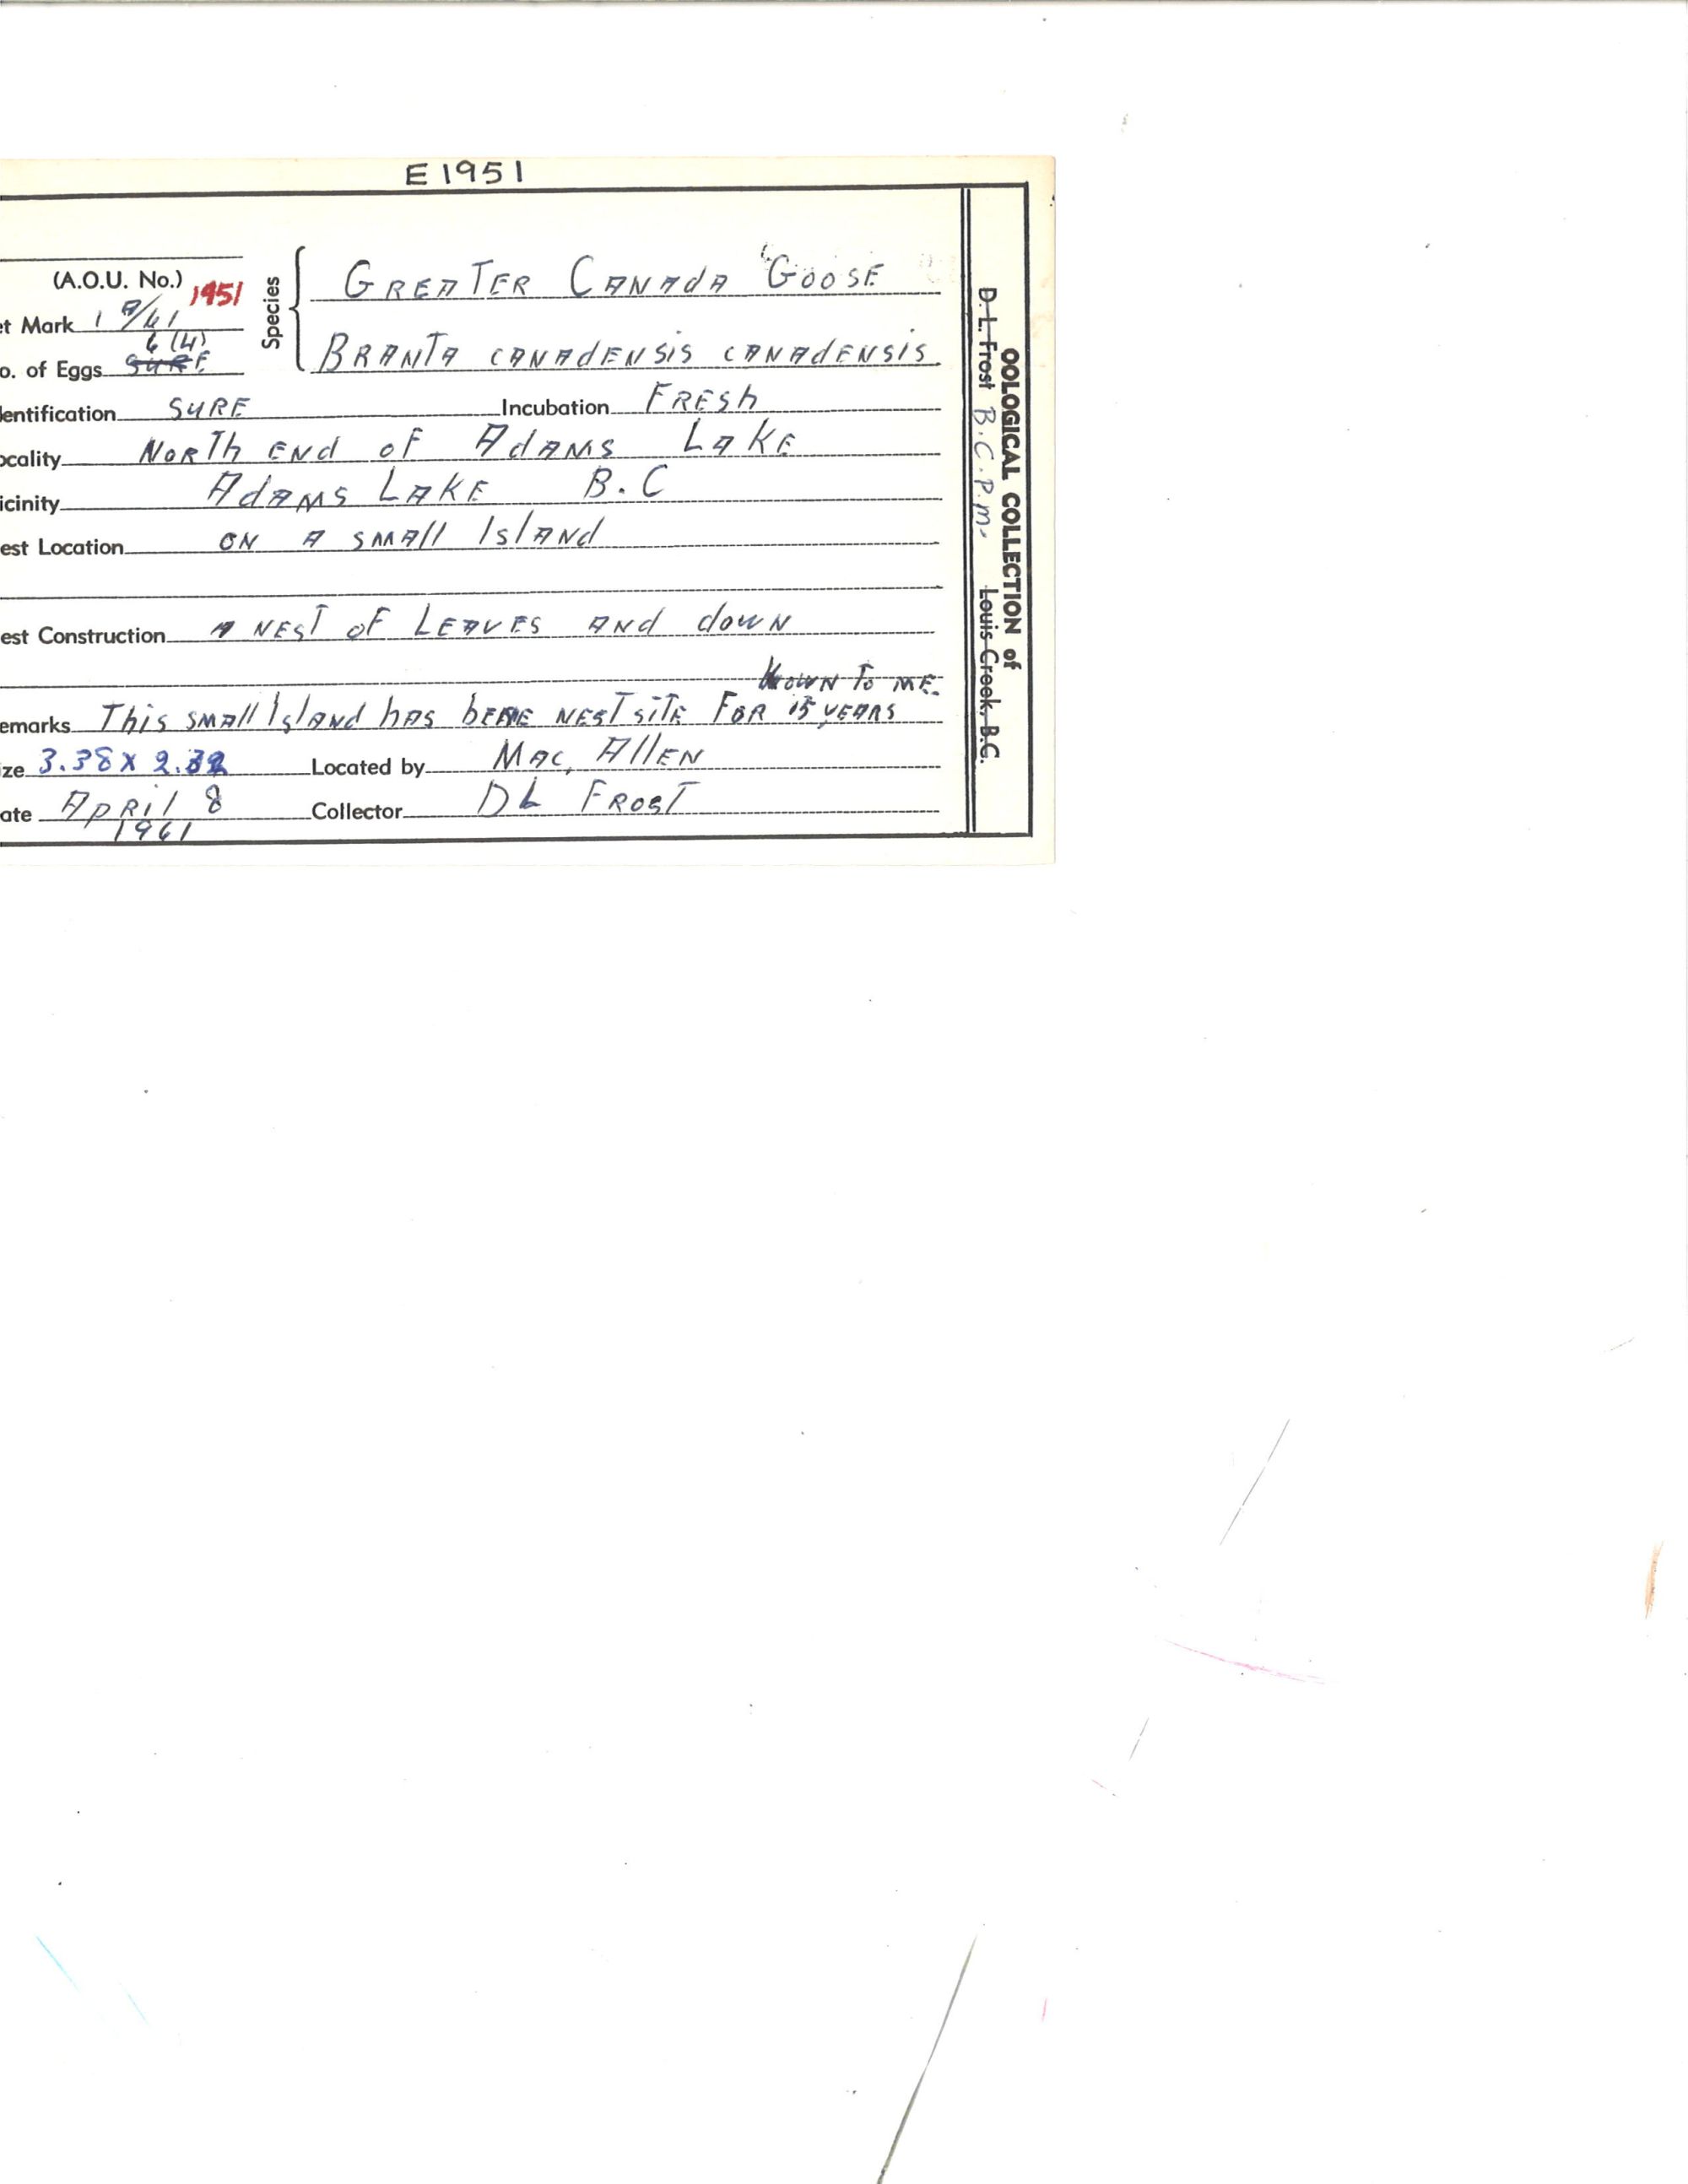 E 1951
(A.O.U. No.) 1951
et Mark 1 A/61
6 (4)
o. of Eggs SURE
Species
GREATER CANADA GOOSE
BRANTA CANADENSIS CANADENSIS.
dentification SURE Incubation FRESH
ocality NORTH END OF ADAMS LAKE
icinity ADAMS LAKE B.C
est Location ON A SMALL ISLAND
est Construction A NEST OF LEAVES AND DOWN
KOWN TO ME.
emarks THIS SMALL ISLAND HAS NEST SITE FOR 15 YEARS
ize 3.38 X 2.32 Located by MAC, ALLEN
ate APRIL 8 Collector DL FROST
1961
OOLOGICAL COLLECTION of
D. L. Frost B.C.P.M. Louis Creek, B.C.